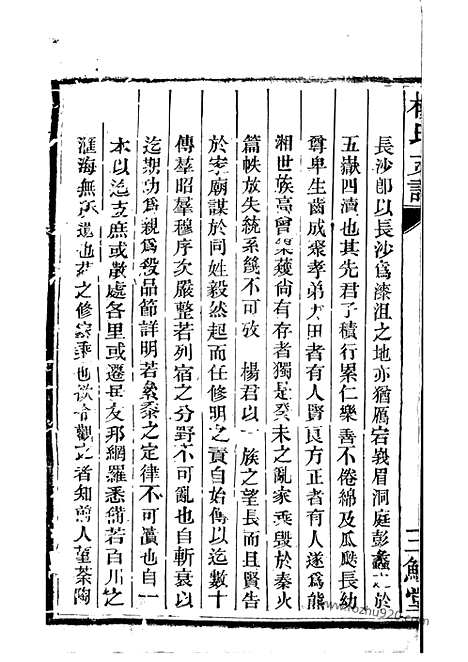 楊氏支譜
長沙郎以長沙爲漆沮之地亦猶鴈宕峩眉洞庭彭蠡之於
五嶽四瀆也其先君子積行累仁樂善不倦綿及瓜瓞長幼
尊卑生齒成聚孝弟力田者有人賢良方正者有人遂爲熊
湘世族高曾渠蒦尚有存者獨是癸未之亂家乘毀於秦火
篇帙放失統系幾不可攷 楊君以 族之望長而且賢告
於家廟謀於同姓毅然起而任修明之責自始傳以迄數十
傳羣昭羣穆序次嚴整若列宿之分野不可亂也自斬衰以
迄期功爲親爲殺品節詳明若絫黍之定律不可瀆也自一
本以迄支庶或散處各里或遷居友邦網羅悉備若百川之
滙海無 遺也 之修 乘也 觀 者知前人望茶陶
三鱣堂